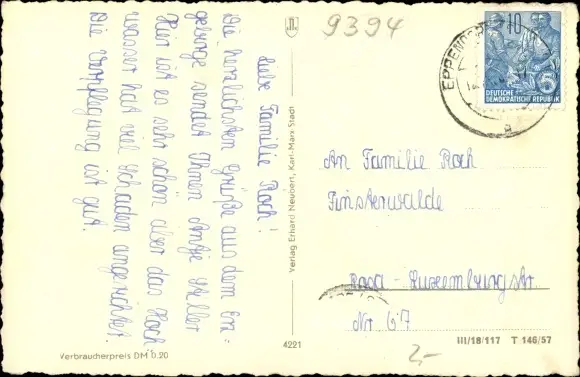 Liebe Familie Koch!
Die herzlichsten Grüße aus dem Erz-
gebirge sendet Ihnen Antje Müller
Hier ist es sehr schön aber das Hoch
wasser hat viel Schaden angerichtet.
Die Verpflegung ist gut.
9394
EPPENDORF
10
5
DEUTSCHE
DEMOKRATISCHE REPUBLIK
a
An Familie Koch
Finsterwalde
Rosa-Luxemburgstr.
Nr. 67
Verlag Erhard Neubert, Karl-Marx-Stadt
4221
III/18/117 T 146/57
Verbraucherpreis DM 0.20
2,-